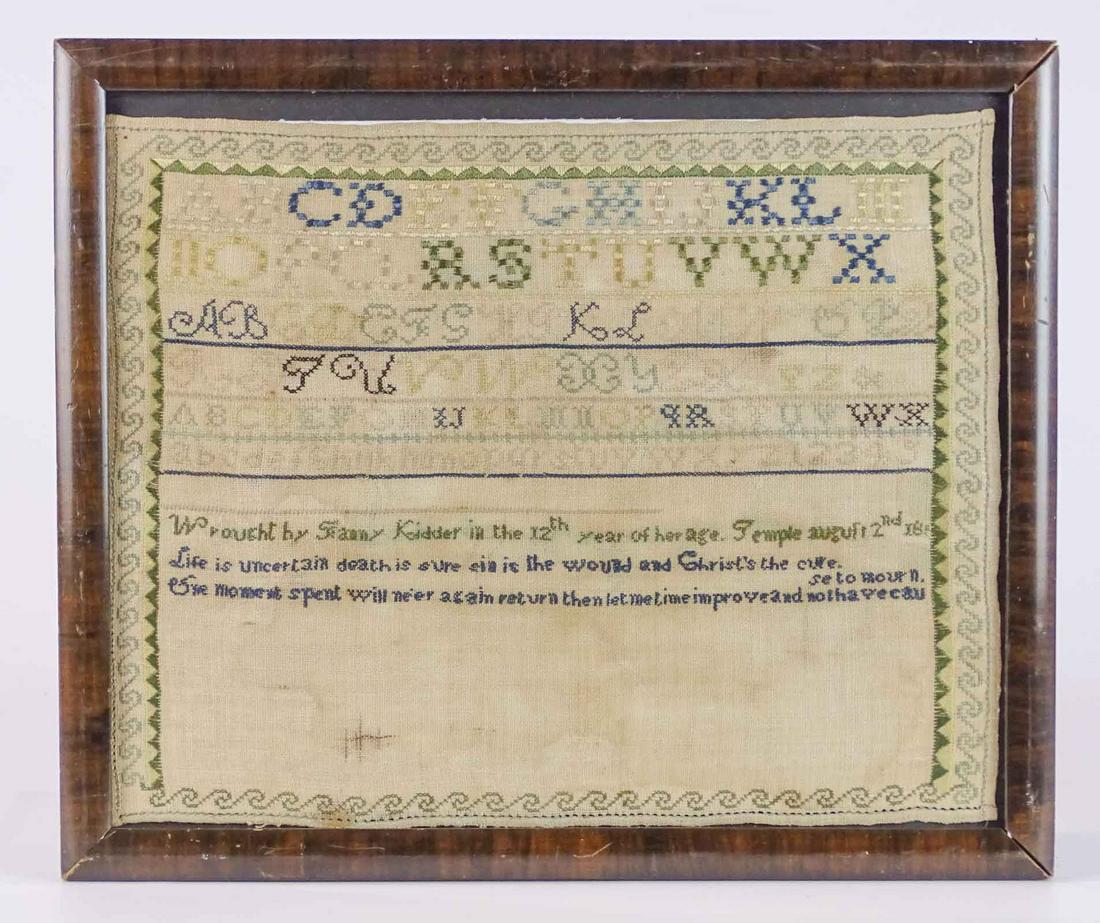 A B C D E F G H I J K L M
N O P Q R S T U V W X
A B C D E F G H K L O P
T U V W X Y
A B C D E F G H I J K L M N P Q R S T U V W X
Wrought by Fanny Kidder in the 12th year of her age. Temple auguſt 2nd
Life is uncertain death is sure sin is the wound and Christ's the cure.
One moment spent will ne'er again return then let me time improve and not have cau
se to mourn.